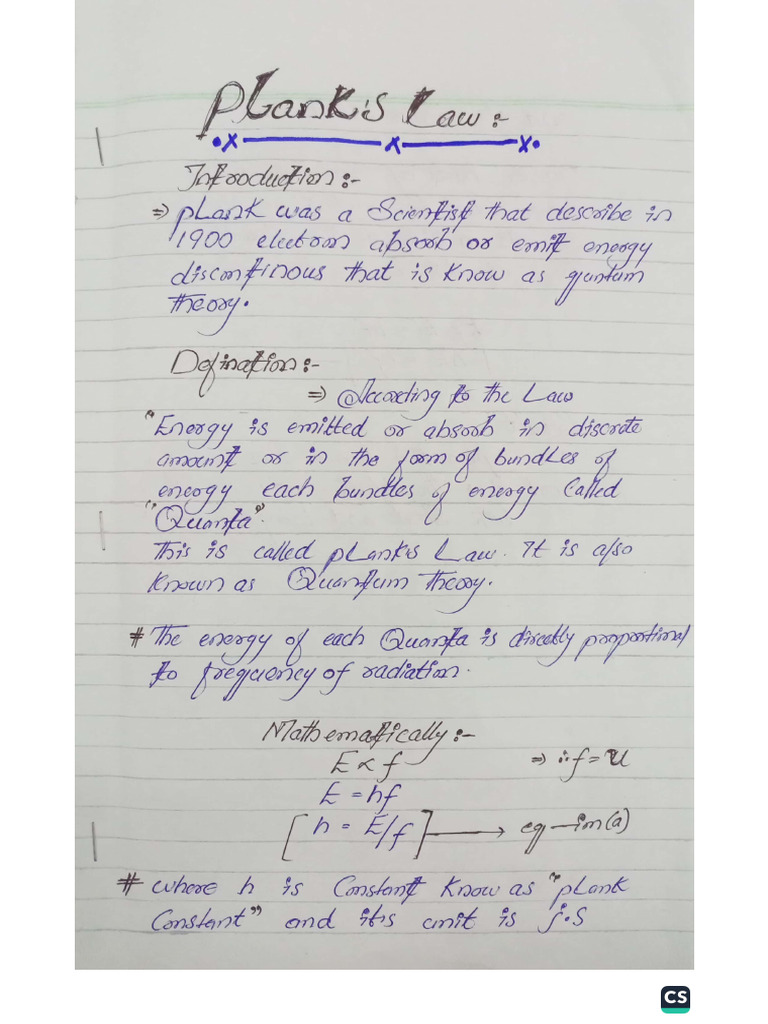 PLank's Law :-
Introduction :-
⇒ pLank was a Scientist that describe in
1900 electron absorb or emit energy
discontinous that is know as quntum
theory.
Defination :-
⇒ According to the Law
"Energy is emitted or absorb in discrete
amount or in the form of bundles of
energy each bundles of energy Called
"Quanta"
This is called pLank's Law. It is also
known as Quantum Theory.
# The energy of each Quanta is directly proportional
to frequency of radiation.
Mathematically :-
E ∝ f ⇒ ∵ f = υ
E = hf
[h = E/f] → eq-im(a)
# where h is Constant know as "pLank
Constant" and it's unit is j.s
CS